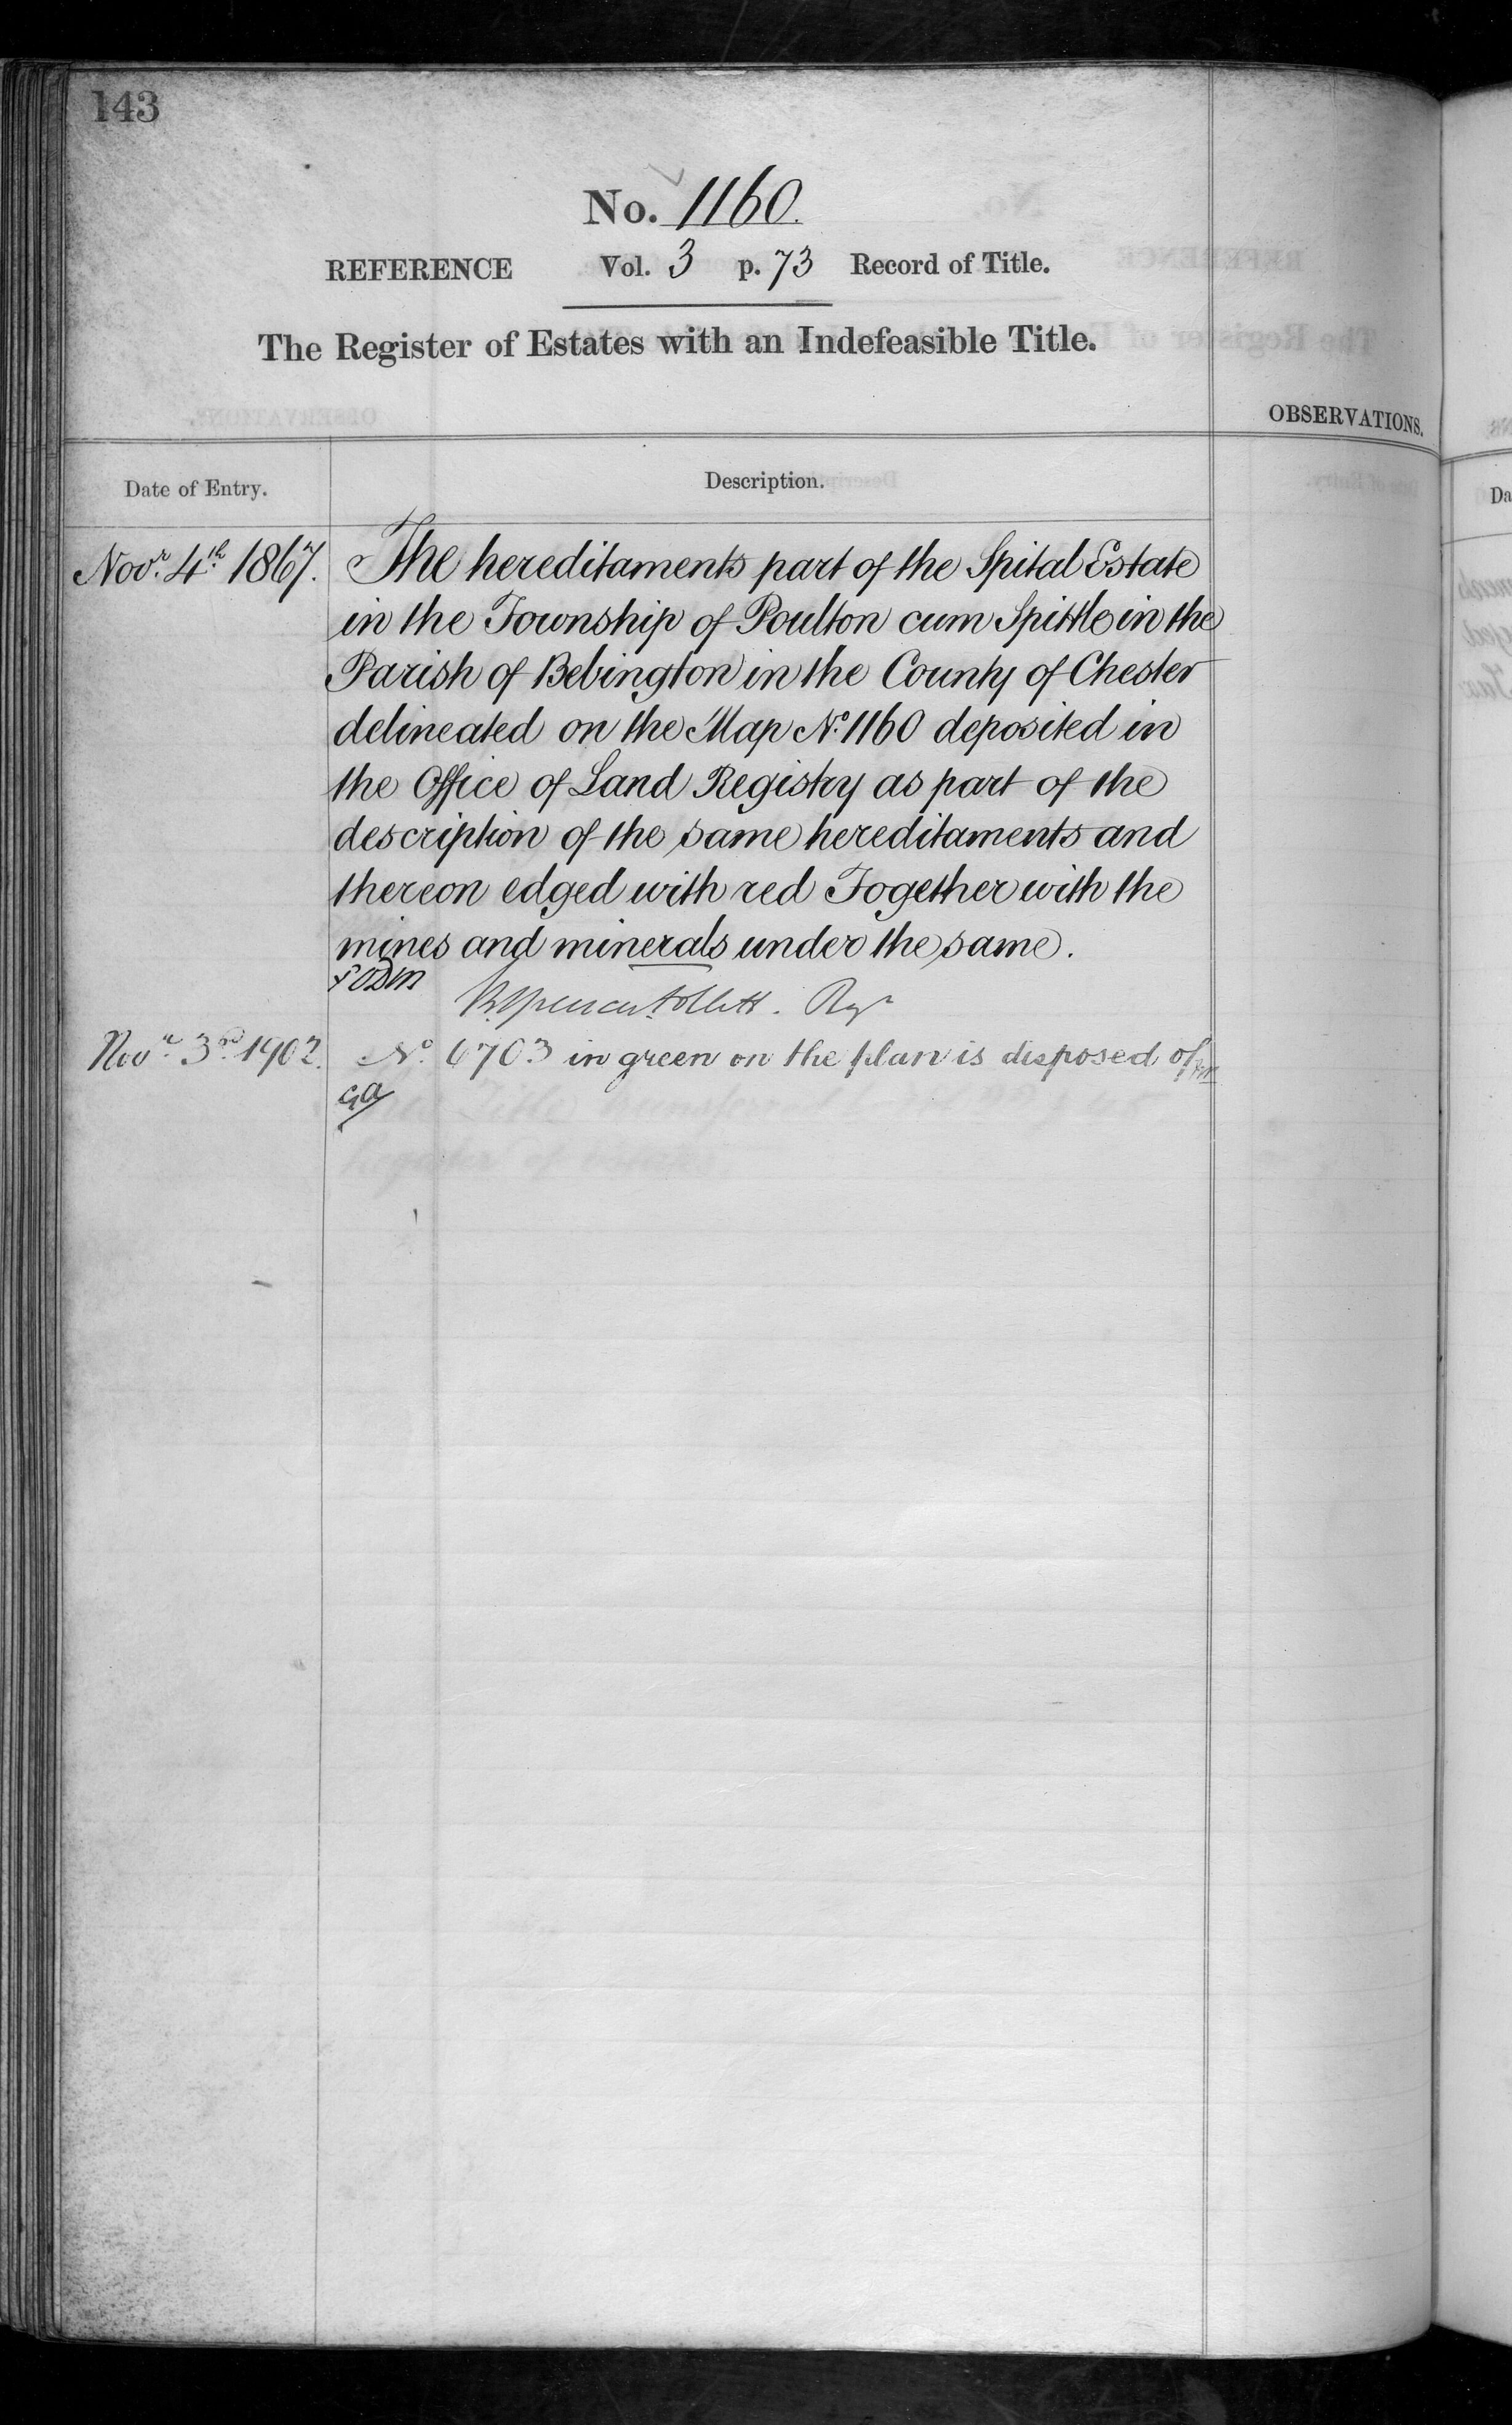 143
No. 1160.
REFERENCE Vol. 3 p. 73 Record of Title.
The Register of Estates with an Indefeasible Title.
OBSERVATIONS.
Date of Entry. Description.
Novr. 4th. 1867. The hereditaments part of the Spital Estate
in the Township of Poulton cum Spittle in the
Parish of Bebington in the County of Chester
delineated on the Map No. 1160 deposited in
the Office of Land Registry as part of the
description of the same hereditaments and
thereon edged with red Together with the
mines and minerals under the same.
Spencer Follett. Regr
Novr. 3rd. 1902. No. 6703 in green on the plan is disposed of
GA
Da